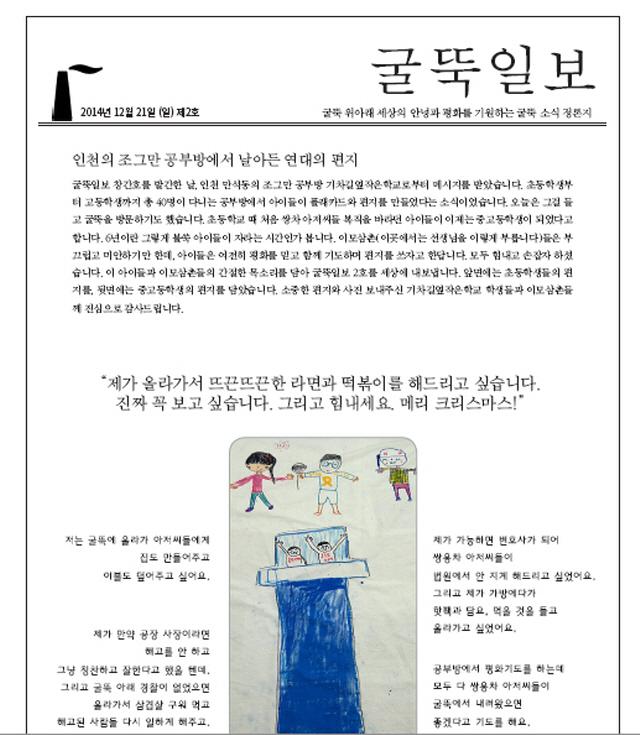 굴뚝일보
2014년 12월 21일 (일) 제2호
굴뚝 위아래 세상의 안녕과 평화를 기원하는 굴뚝 소식 정론지
인천의 조그만 공부방에서 날아든 연대의 편지
굴뚝일보 창간호를 발간한 날, 인천 만석동의 조그만 공부방 기차길옆작은학교로부터 메시지를 받았습니다. 초등학생부
터 고등학생까지 총 40명이 다니는 공부방에서 아이들이 플래카드와 편지를 만들었다는 소식이었습니다. 오늘은 그걸 들
고 굴뚝을 방문하기도 했습니다. 초등학교 때 처음 쌍차 아저씨들 복직을 바라던 아이들이 이제는 중고등학생이 되었다고
합니다. 6년이란 그렇게 불쑥 아이들이 자라는 시간인가 봅니다. 이모삼촌(이곳에서는 선생님을 이렇게 부릅니다)들은 부
끄럽고 미안하기만 한데, 아이들은 여전히 평화를 믿고 함께 기도하며 편지를 쓰자고 한답니다. 모두 힘내고 손잡자 하셨
습니다. 이 아이들과 이모삼촌들의 간절한 목소리를 담아 굴뚝일보 2호를 세상에 내보냅니다. 앞면에는 초등학생들의 편
지를, 뒷면에는 중고등학생의 편지를 담았습니다. 소중한 편지와 사진 보내주신 기차길옆작은학교 학생들과 이모삼촌들
께 진심으로 감사드립니다.
“제가 올라가서 뜨끈뜨끈한 라면과 떡볶이를 해드리고 싶습니다.
진짜 꼭 보고 싶습니다. 그리고 힘내세요. 메리 크리스마스!”
저는 굴뚝에 올라가 아저씨들에게
집도 만들어주고
이불도 덮어주고 싶어요.
제가 만약 공장 사장이라면
해고를 안 하고
그냥 칭찬하고 잘한다고 했을 텐데.
그리고 굴뚝 아래 경찰이 없었으면
올라가서 삼겹살 구워 먹고
해고된 사람들 다시 일하게 해주고.
제가 가능하면 변호사가 되어
쌍용차 아저씨들이
법원에서 안 지게 해드리고 싶었어요.
그리고 제가 가방에다가
핫팩과 담요, 먹을 것을 들고
올라가고 싶었어요.
공부방에서 평화기도를 하는데
모두 다 쌍용차 아저씨들이
굴뚝에서 내려왔으면
좋겠다고 기도를 해요.